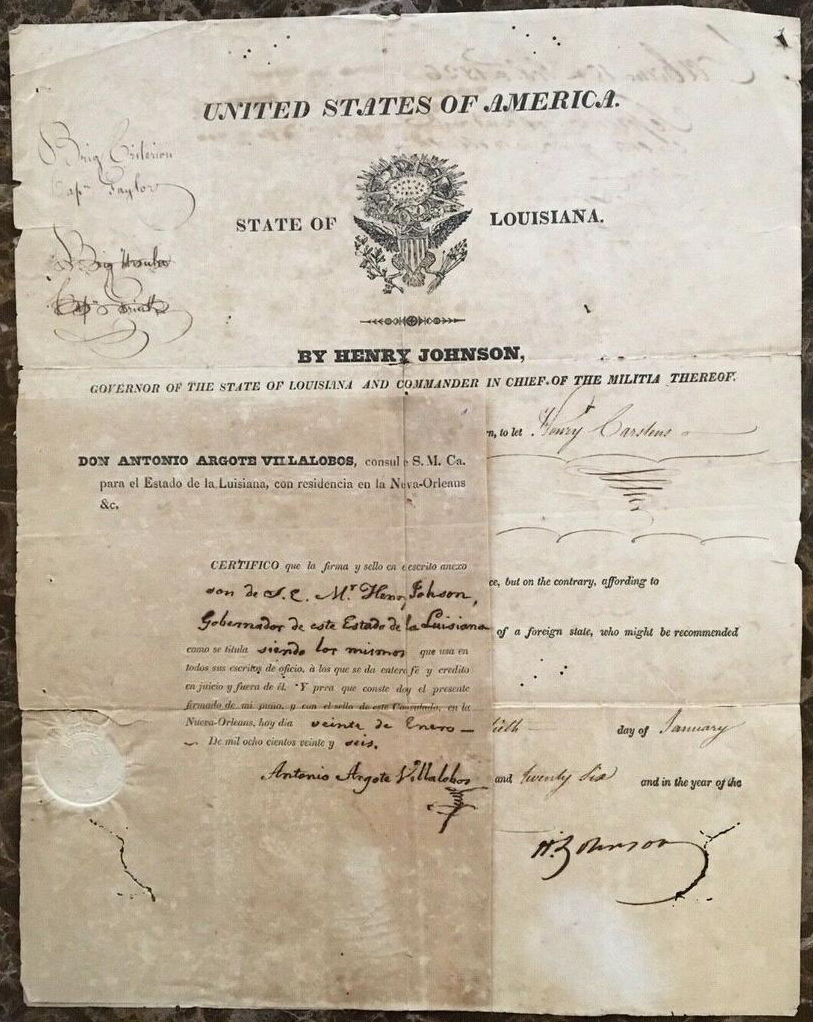 UNITED STATES OF AMERICA.
Brig Criterion
Capn Taylor
STATE OF LOUISIANA.
Brig
Capn
BY HENRY JOHNSON,
GOVERNOR OF THE STATE OF LOUISIANA AND COMMANDER IN CHIEF OF THE MILITIA THEREOF.
n, to let Henry Carstens
DON ANTONIO ARGOTE VILLALOBOS, consul e S. M. Ca.
para el Estado de la Luisiana, con residencia en la Neva-Orleans
&c.
CERTIFICO que la firma y sello en escrito anexo
ce, but on the contrary, affording to
son de S. E. Mr Henry Johson,
Gobernador de este Estado de la Luisiana
of a foreign state, who might be recommended
como se titula siendo los mismos que usa en
todos sus escritos de oficio, à los que se da entera fé y credito
en juicio y fuera de él. Y prea que conste doy el presente
firmado de mi puño, y con el sello de este Consulado, en la
Nueva-Orleans, hoy dia veinte de Enero
day of January
De mil ocho cientos veinte y seis.
Antonio Argote Villalobos
and twenty Six and in the year of the
H. Johnson